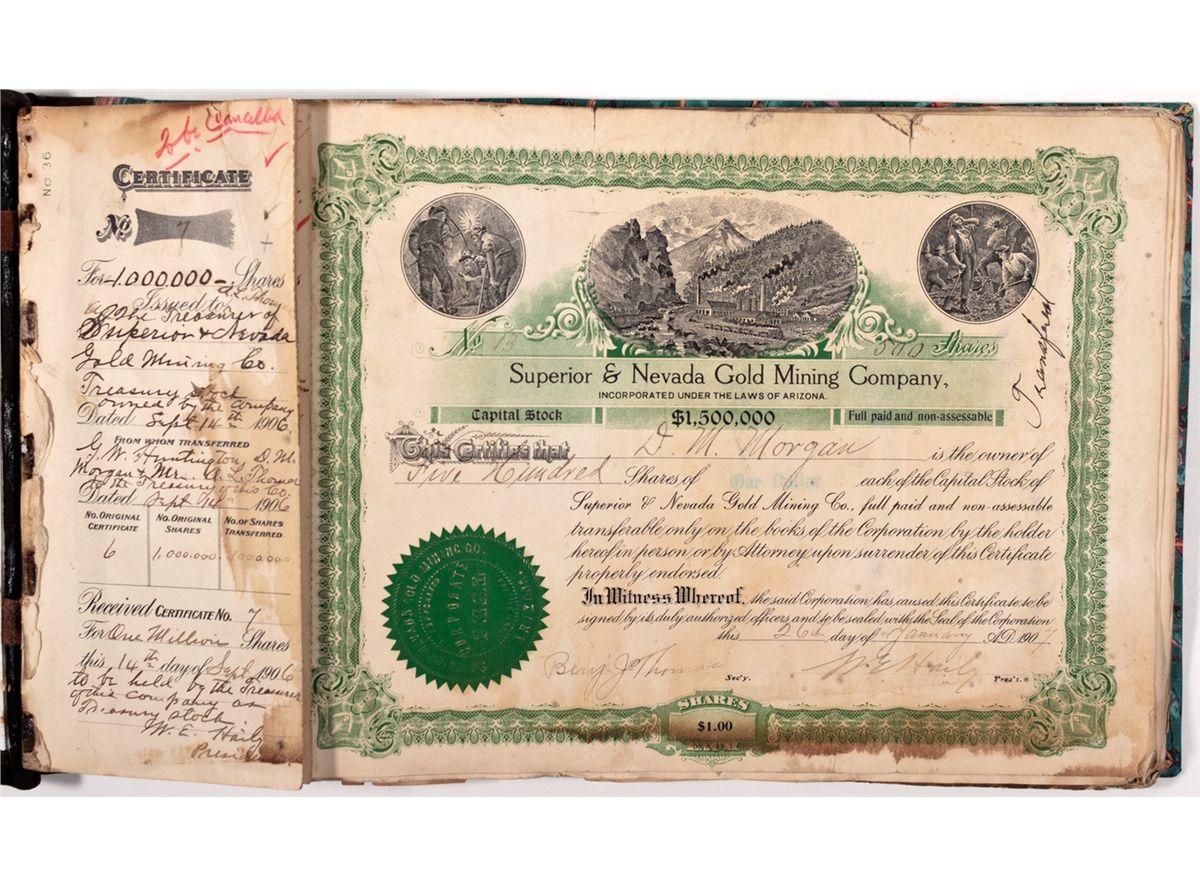 No 36
To be Cancelled
CERTIFICATE
No. 7
For 1.000.000 Shares
Issued to
The Treasurer of
Superior & Nevada
Gold Mining Co.
Treasury Stock
owned by the Company
Dated Sept 14th 1906
FROM WHOM TRANSFERRED
G. W. Huntington, D. M.
Morgan & Mr. A. L. Thomas
to the Treasury of this Co.
Dated Sept 14 1906
NO. ORIGINAL CERTIFICATE
NO. ORIGINAL SHARES
NO. OF SHARES TRANSFERRED
6 1.000.000 1.000.000
Received CERTIFICATE NO. 7
For One Million Shares
this 14th day of Sept 1906
to be held by the Treasurer
of this company as
Treasury stock
W. E. Haily
Presid
No. 13
500 Shares
Transfered
Superior & Nevada Gold Mining Company,
INCORPORATED UNDER THE LAWS OF ARIZONA.
Capital Stock $1,500,000 Full paid and non-assessable
This Certifies that D. M. Morgan is the owner of
Five Hundred Shares of One Dollar each of the Capital Stock of
Superior & Nevada Gold Mining Co., full paid and non-assessable
transferable only on the books of the Corporation by the holder
hereof in person or by Attorney upon surrender of this Certificate
properly endorsed.
In Witness Whereof, the said Corporation has caused this Certificate to be
signed by its duly authorized officers and to be sealed with the Seal of the Corporation
this 26th day of January A.D. 1907
Benj J Thomas Sec'y.
W. E. Haily Pres't.
CORPORATE SEAL
SHARES
$1.00
EACH